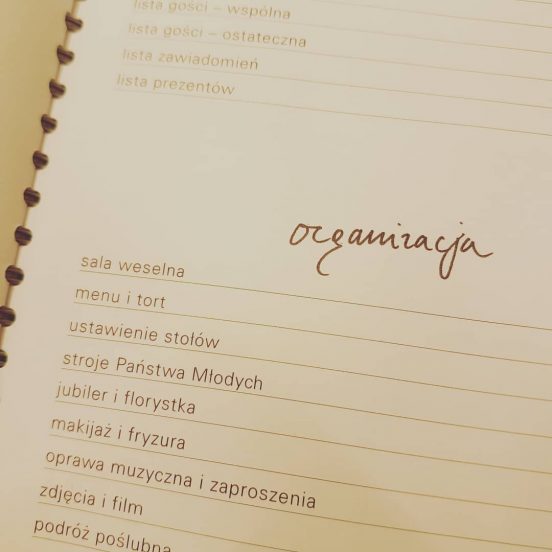 lista gości – wspólna
lista gości – ostateczna
lista zawiadomień
lista prezentów
organizacja
sala weselna
menu i tort
ustawienie stołów
stroje Państwa Młodych
jubiler i florystka
makijaż i fryzura
oprawa muzyczna i zaproszenia
zdjęcia i film
podróż poślubna